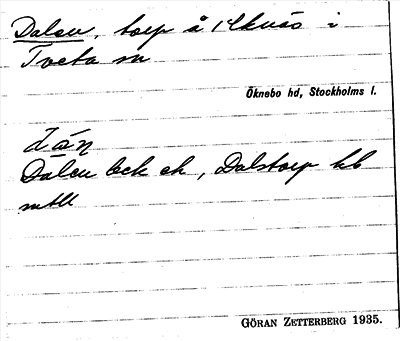 Dalen, torp å Eknäs i
Tveta sn
Öknebo hd, Stockholms l.
Dalen beck ek, Dalstorp hb
mtll
GÖRAN ZETTERBERG 1935.